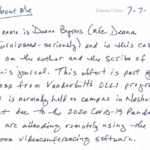 About Me
7-7-
name is Deana Byrnes (née Deana
- seriously) and in this case
am the author and the Scribe of
this journal. This effort is part of
class from Vanderbilt OLLI program
is normally held on campus in Nashville
but due to the 2020 Covid-19 Pandemic
are attending remotely using the
Zoom videoconferencing software.